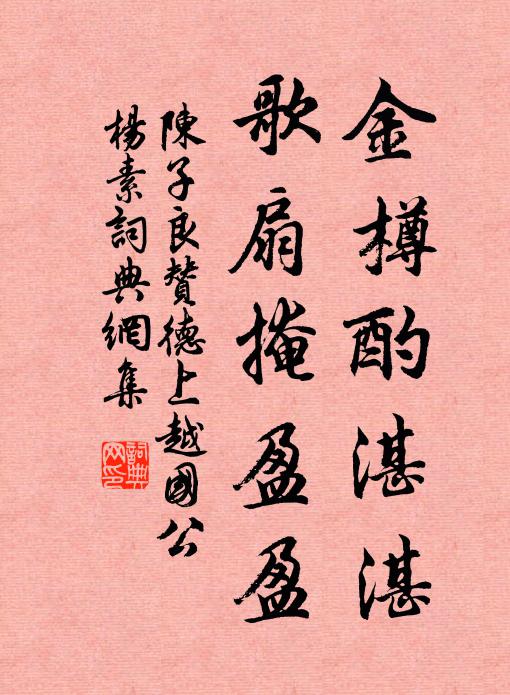 金樽酌湛湛
歌扇掩盈盈
陳子良贊德上越國公
楊素詞典網集
詞典网印